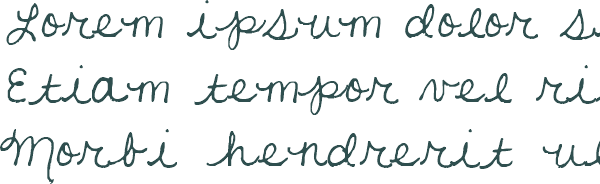 Lorem ipsum dolor s
Etiam tempor vel ri
Morbi hendrerit u